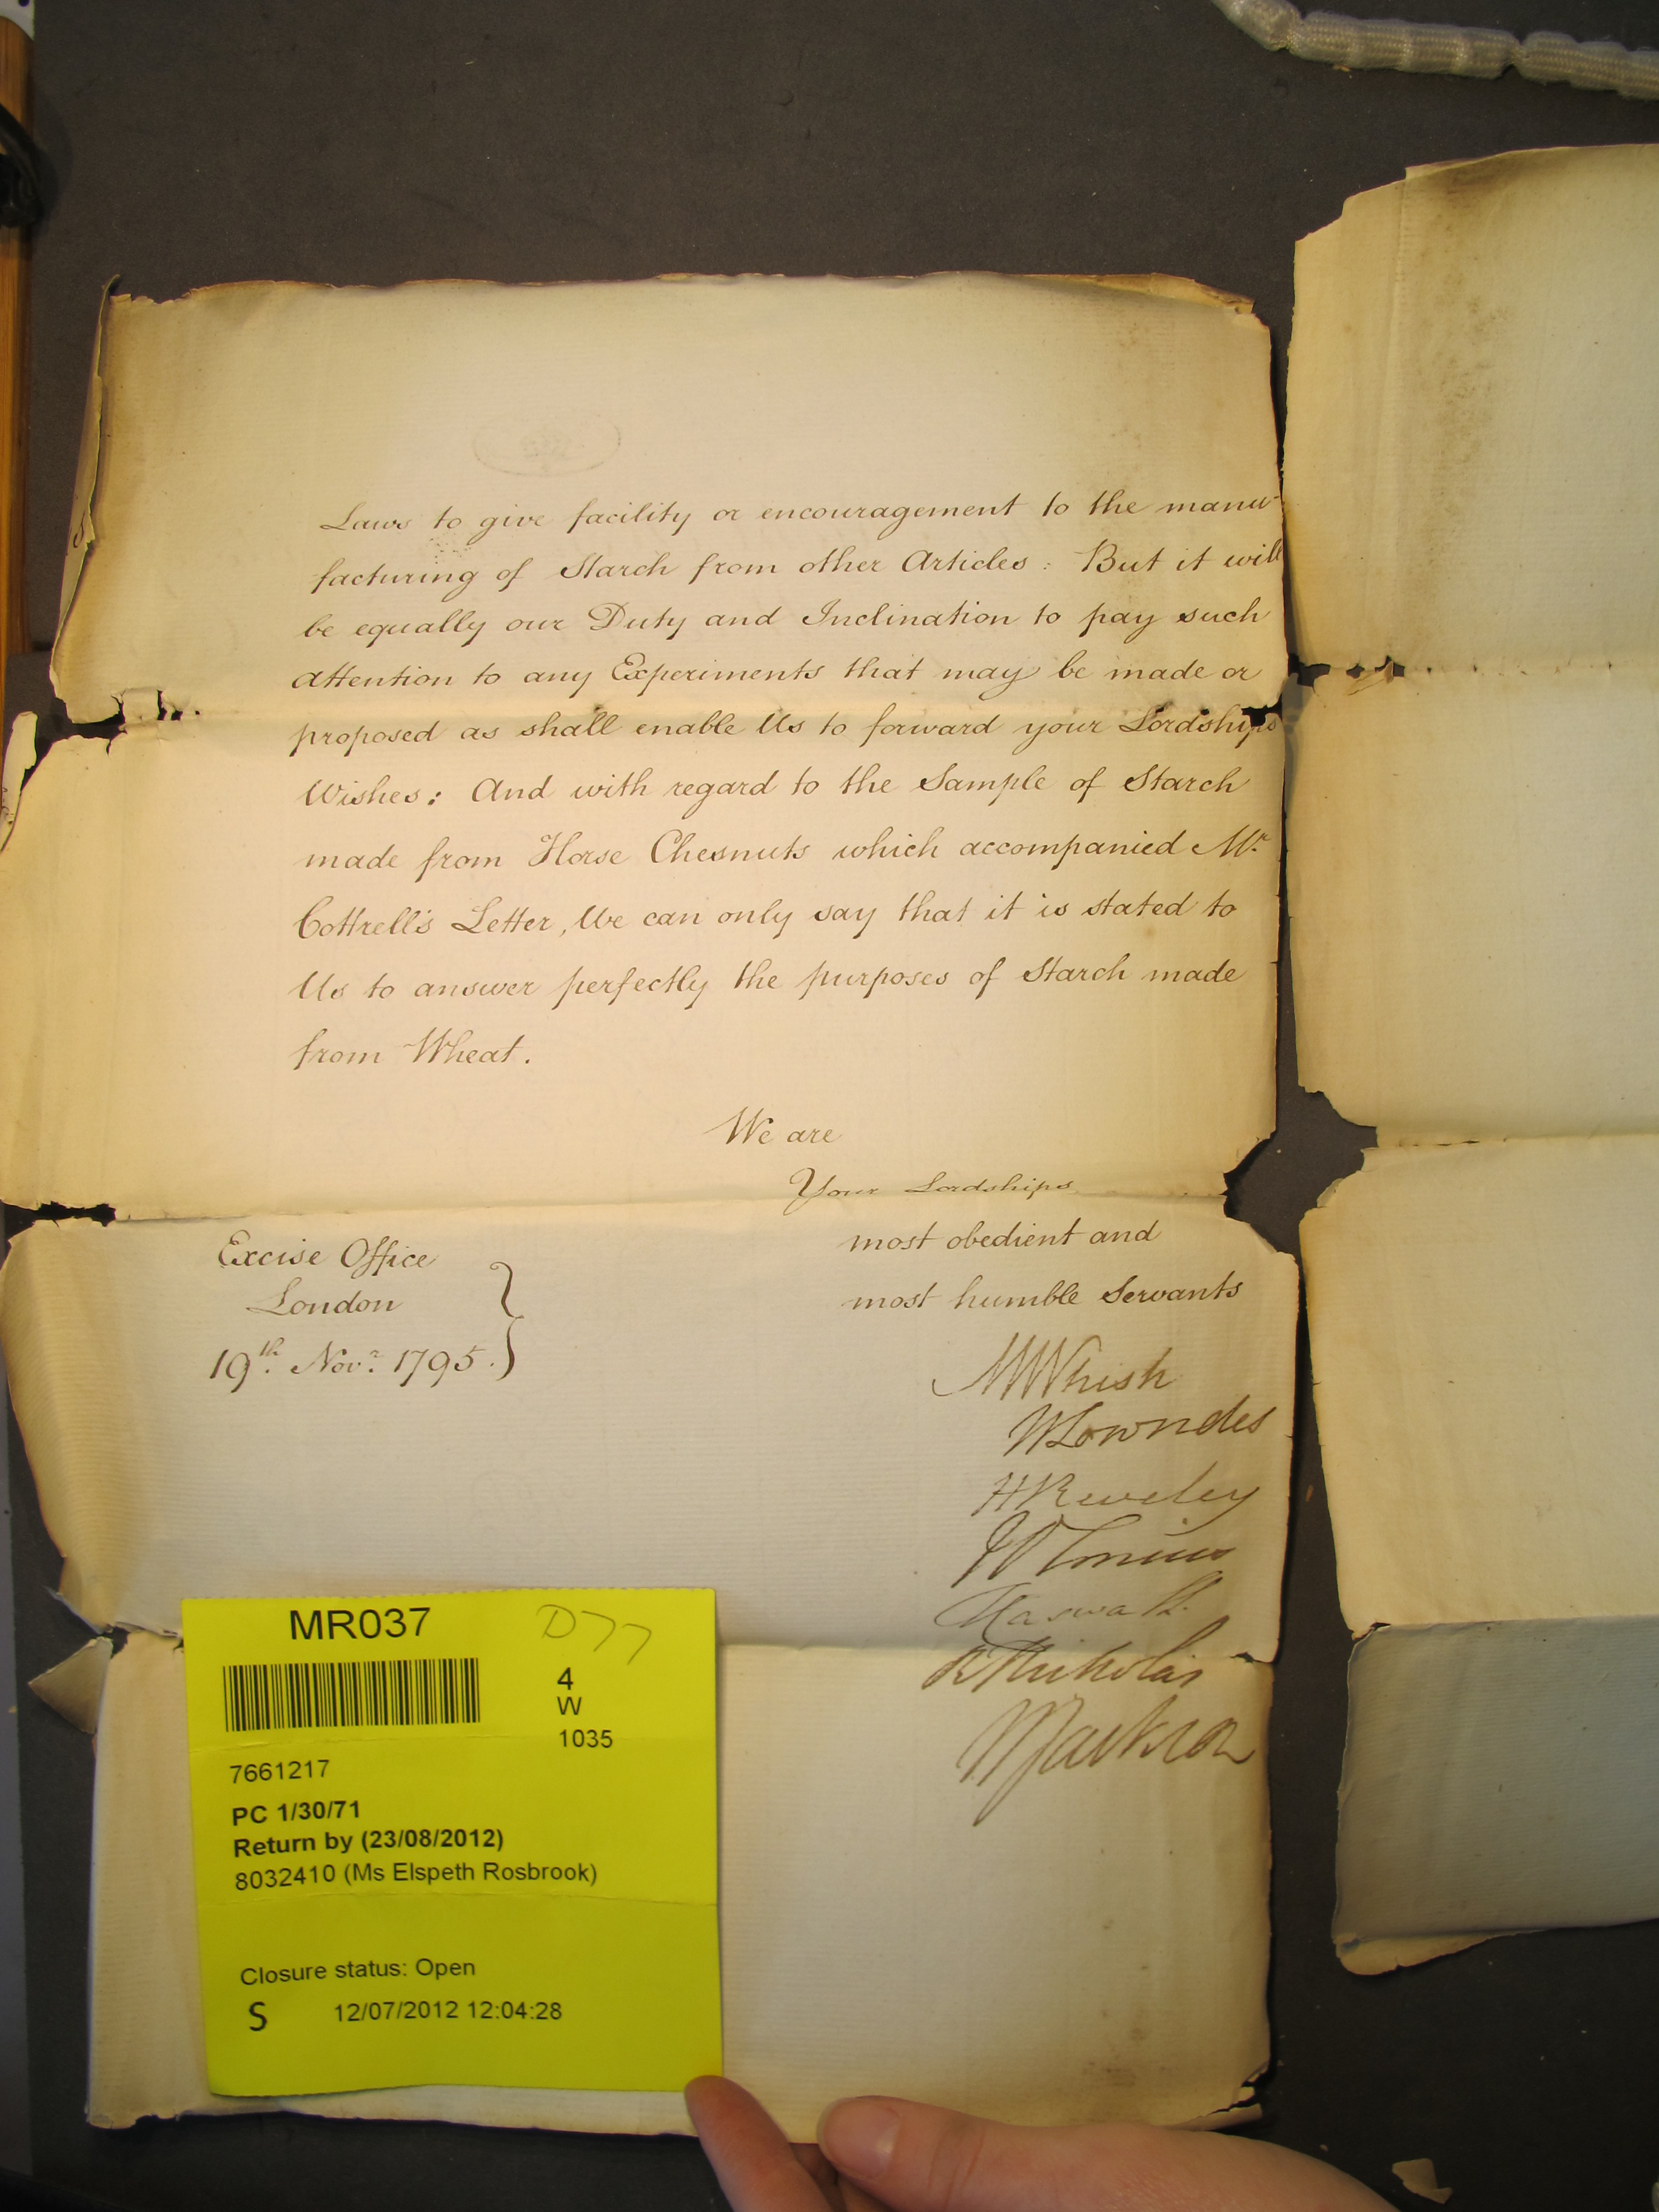 Laws to give facility or encouragement to the manu-
facturing of Starch from other Articles: But it will
be equally our Duty and Inclination to pay such
attention to any Experiments that may be made or
proposed as shall enable Us to forward your Lordships
Wishes: And with regard to the Sample of Starch
made from Horse Chesnuts which accompanied Mr.
Cottrell's Letter, We can only say that it is stated to
Us to answer perfectly the purposes of Starch made
from Wheat.
We are
Your Lordships
most obedient and
most humble Servants
Excise Office
London
19th. Novr. 1795.
M Whish
W Lowndes
H Reveley
R Nicholas
W Jackson
MR037
D77
4
W
1035
7661217
PC 1/30/71
Return by (23/08/2012)
8032410 (Ms Elspeth Rosbrook)
Closure status: Open
S 12/07/2012 12:04:28